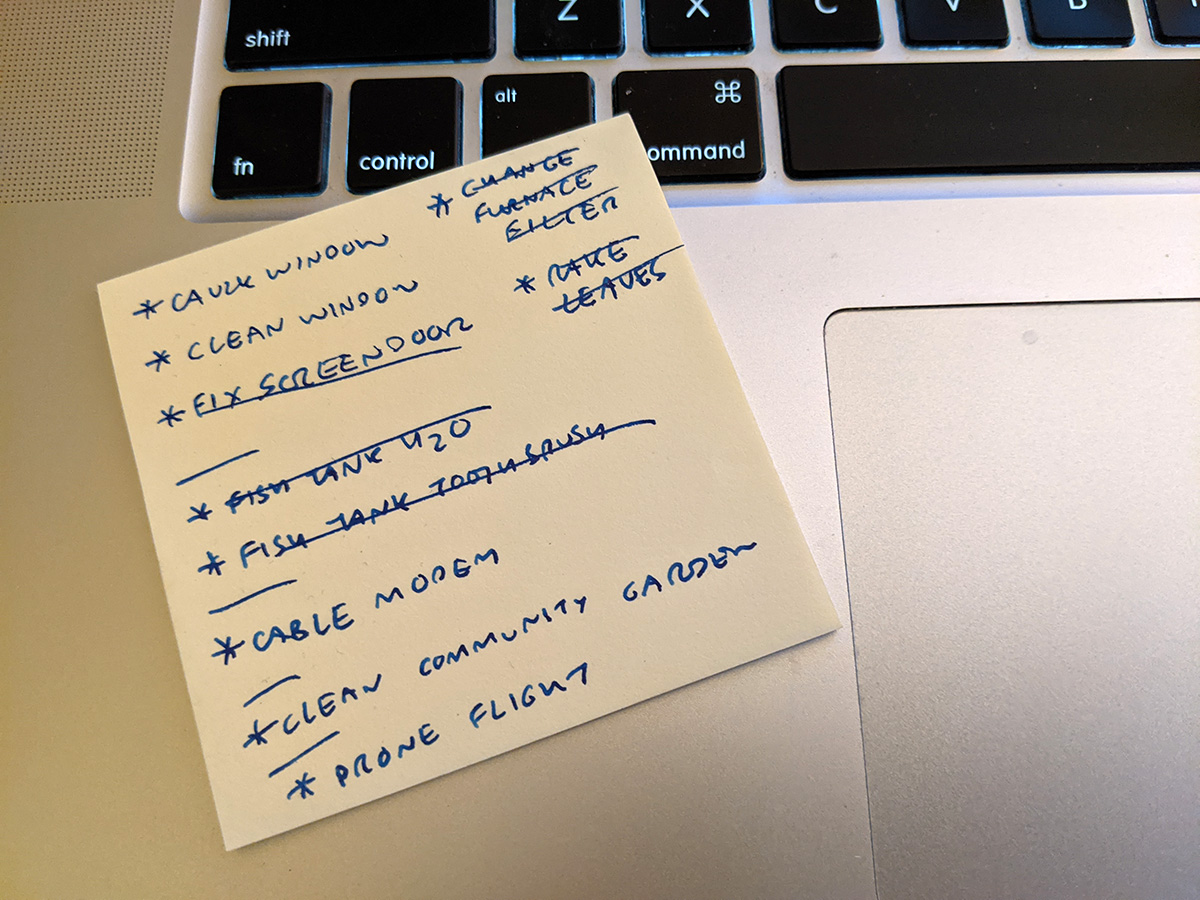 shift
Z
X
C
V
B
fn
control
alt
⌘
ommand
* CAULK WINDOW
* CLEAN WINDOW
* FIX SCREENDOOR
* FISH TANK H2O
* FISH TANK TOOTHBRUSH
* CABLE MODEM
* CLEAN COMMUNITY GARDEN
* DRONE FLIGHT
* CHANGE
FURNACE
FILTER
* RAKE
LEAVES